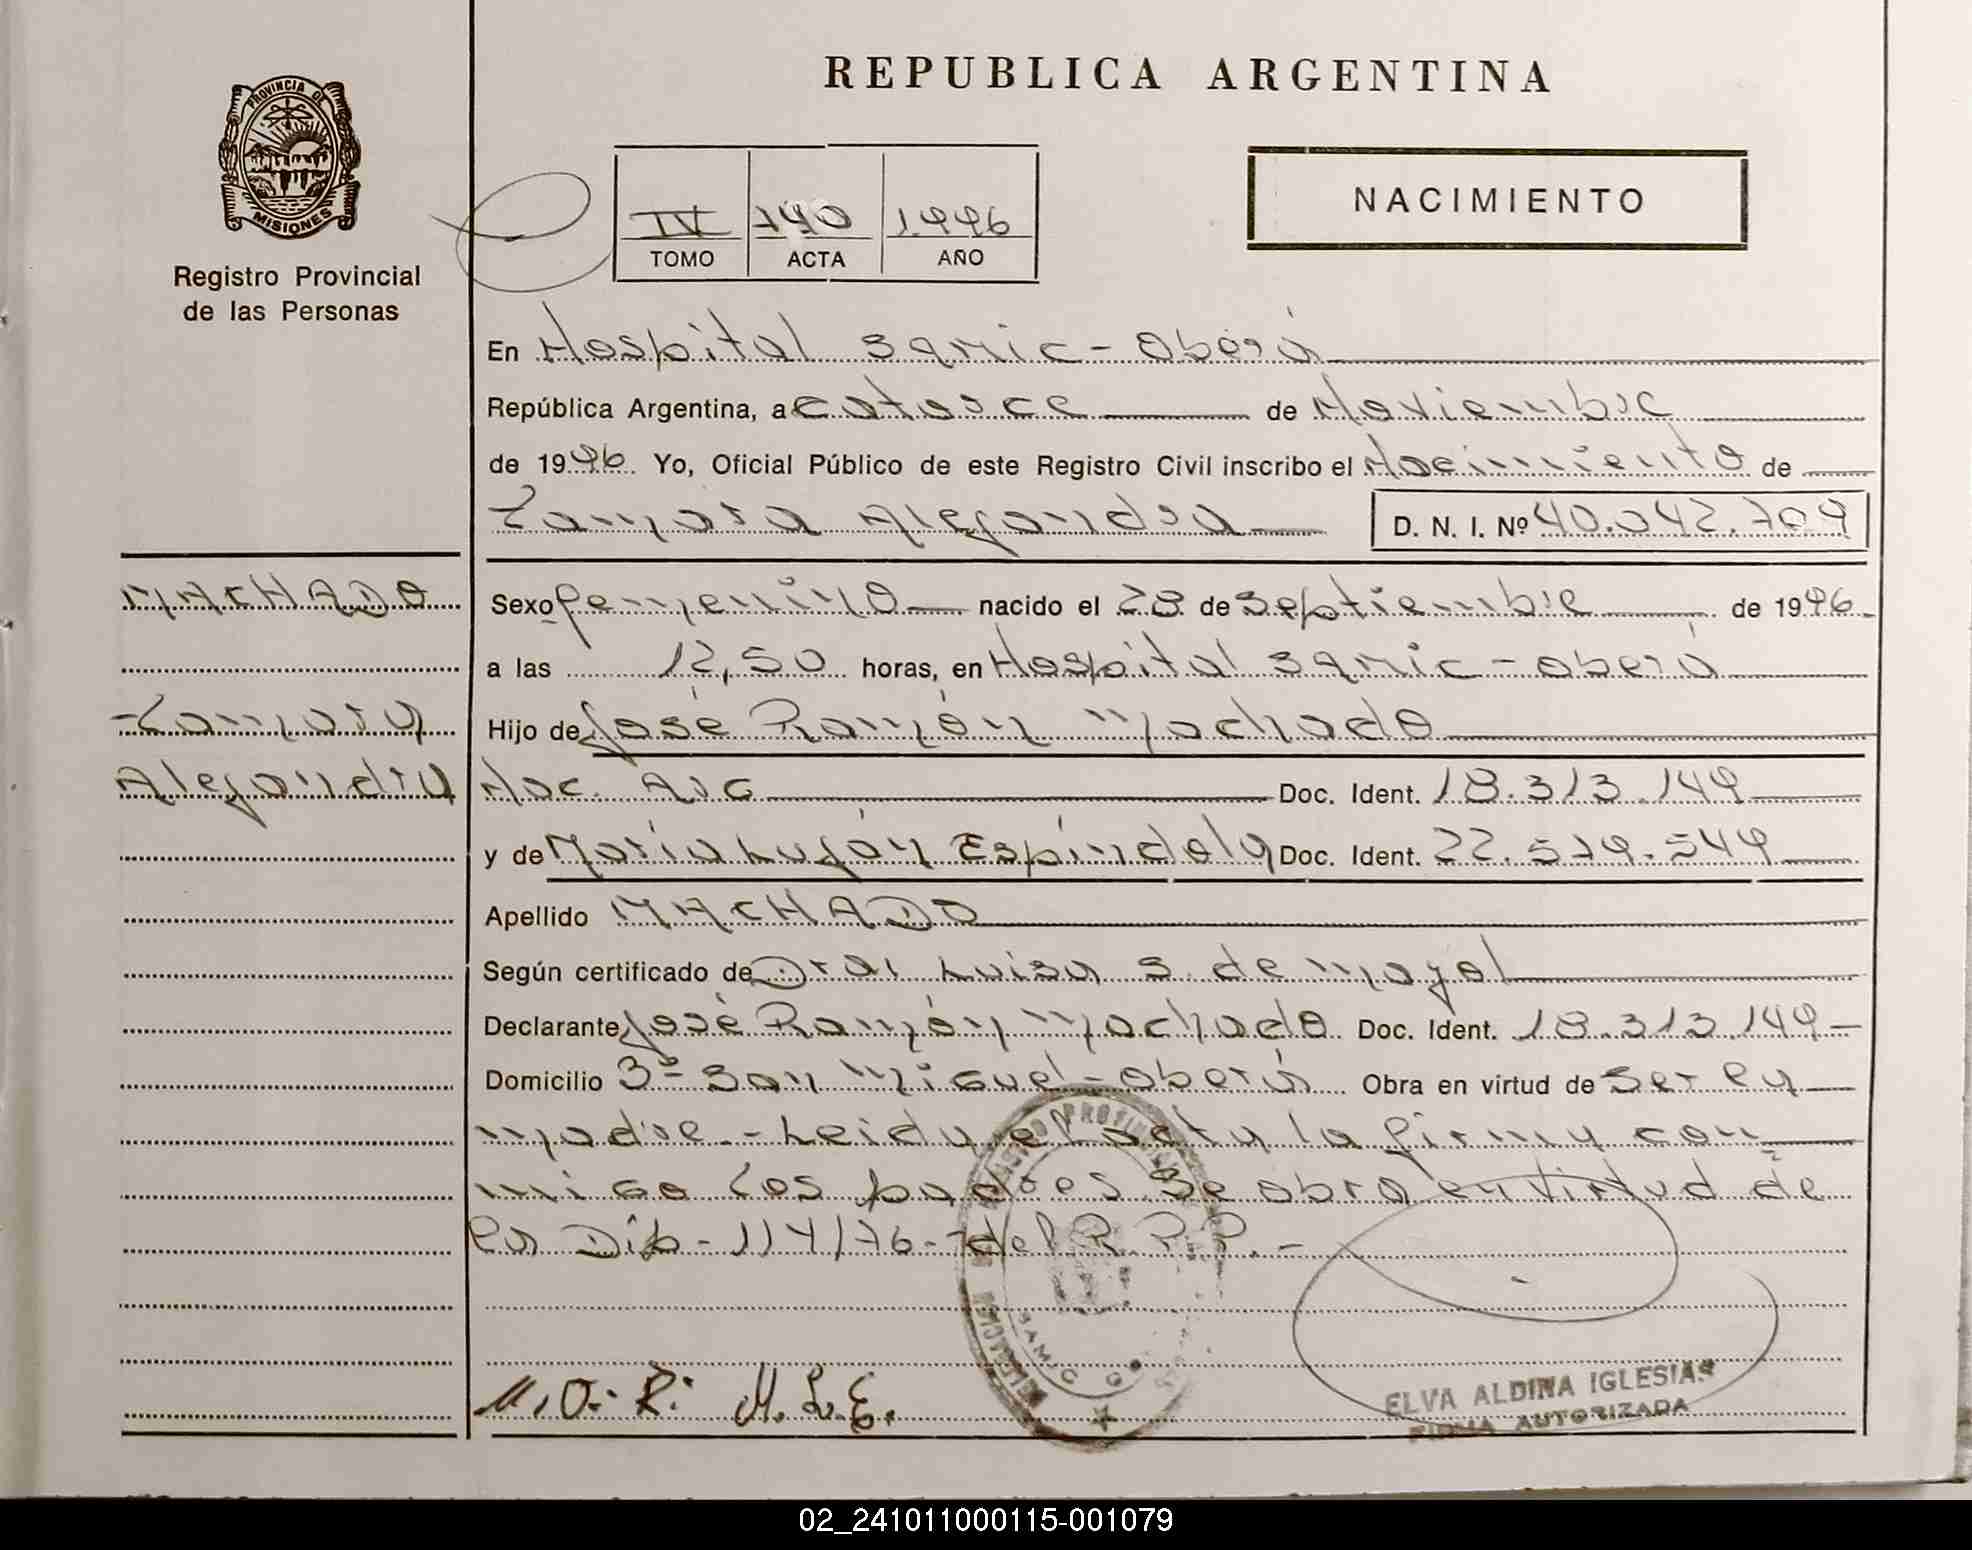 REPUBLICA ARGENTINA
PROVINCIA DE
MISIONES
Registro Provincial
de las Personas
IV 740 1996
TOMO ACTA AÑO
NACIMIENTO
En Hospital Samic - Oberá
República Argentina, a catorce de Noviembre
de 1996. Yo, Oficial Público de este Registro Civil inscribo el Nacimiento de
Tamara Alejandra D. N. I. Nº 40.042.709
MACHADO
Tamara
Alejandra
Sexo femenino nacido el 28 de Septiembre de 1996
a las 12,50 horas, en Hospital Samic - Oberá
Hijo de José Ramón Machado
Nac. Arg Doc. Ident. 18.313.149
y de María Luján Espíndola Doc. Ident. 22.579.549
Apellido MACHADO
Según certificado de Dra. Luisa S. de Mayol
Declarante José Ramón Machado Doc. Ident. 18.313.149
Domicilio 3º San Miguel - Oberá Obra en virtud de Ser la
madre.- Leida el acta la firma con
migo los padres Se obra en virtud de
la Dip - 114/76 - del R.P.P. -
M. O. R. M. L. E.
SAMIC
ELVA ALDINA IGLESIAS
FIRMA AUTORIZADA
02_241011000115-001079